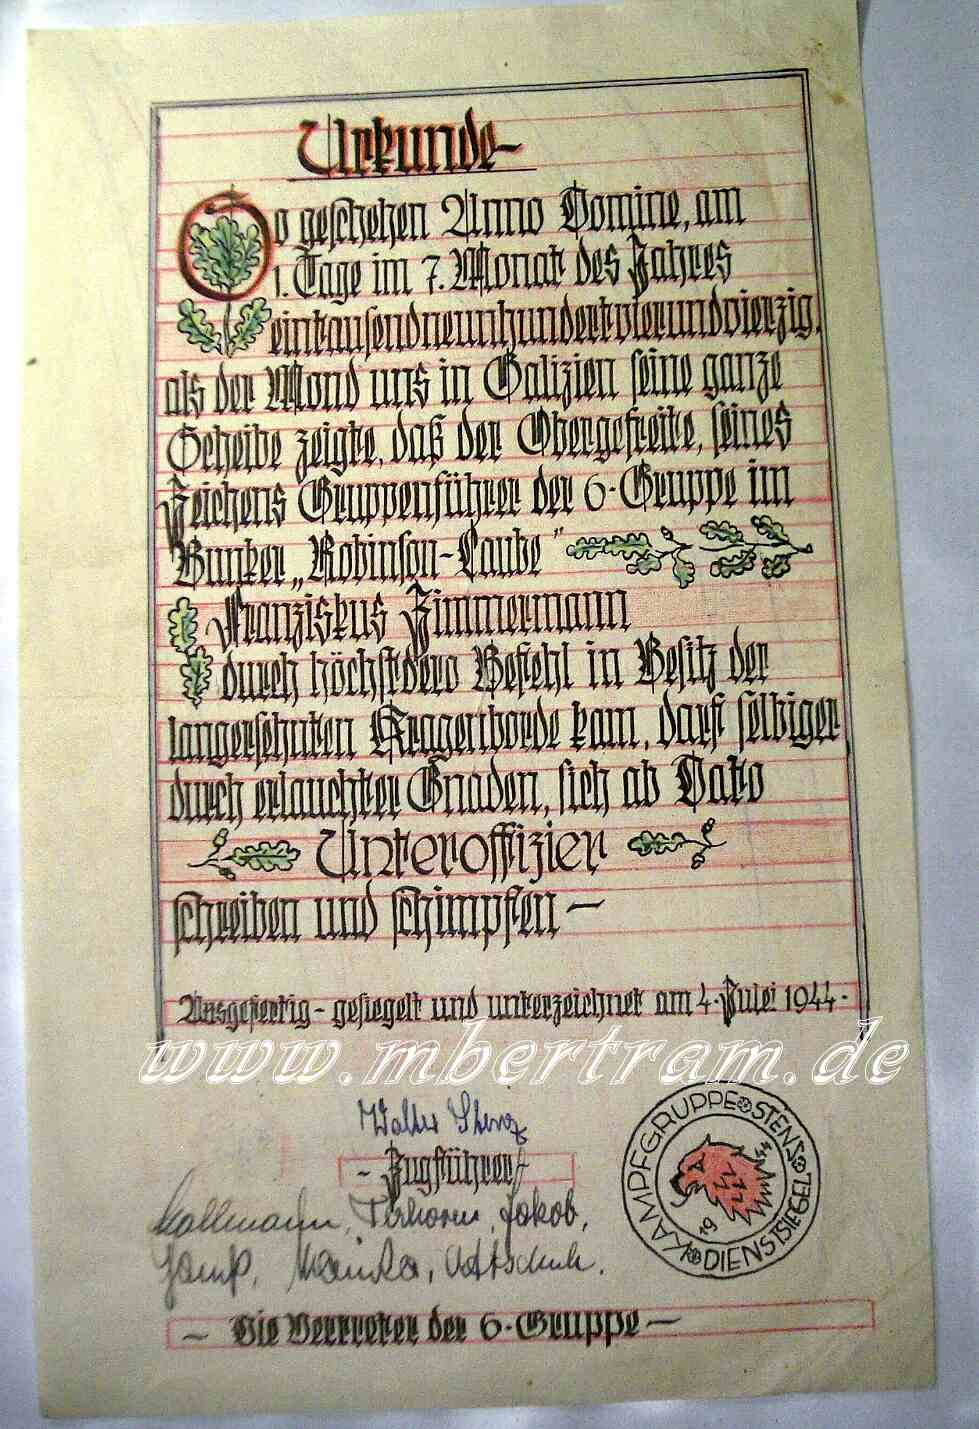 Urkunde
So geschehen Anno Domine, am
1. Tage im 7. Monat des Jahres
eintausendneunhundertvierundvierzig,
als der Mond uns in Galizien seine ganze
Scheibe zeigte, daß der Obergefreite, seines
Zeichens Gruppenführer der 6. Gruppe im
Bunker „Robinson-Laube"
Franziskus Zimmermann
durch höchstdero Befehl in Besitz der
langersehnten Kragenborde kam, darf selbiger
durch erlauchter Gnaden, sich ab Dato
Unteroffizier
schreiben und schimpfen —
Ausgefertig - gesiegelt und unterzeichnet am 4. Julei 1944.
www.mbertram.de
Walter Stenz
- Zugführer -
Kallmann, Terhorn, Jakob,
KAMPFGRUPPE STENZ
DIENSTSIEGEL
19 44
— Die Vertreter der 6. Gruppe —